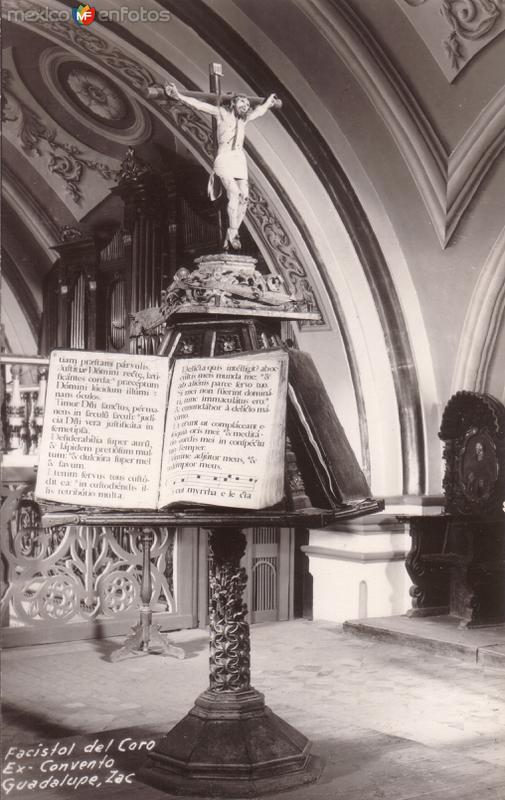 mexicoenfotos
MF
tiam præstans párvulis,
Justítiæ Dómini rectæ, læti-
ficántes corda: * præceptum
Dómini lúcidum illúmi
nans óculos.
Timor Dñi sanctus, pérma-
nens in sǽculū sǽculi: * judí-
cia Dñi vera justificáta in
semetípsa.
Desiderabília super aurū,
& lápidem pretiósum mul-
tum: * & dulcióra super mel
& favum.
Etenim servus tuus custó-
dit ea: * in custodiéndis
illis retribútio multa.
Delícta quis intélligit? ab oc-
cúltis meis munda me: * &
ab aliénis parce servo tuo
Si mei non fúerint domináti
tunc immaculátus ero: *
& emundábor à delícto má-
ximo.
Et erunt ut compláceant e-
lóquia oris mei: * & meditá-
tio cordis mei in conspéctu
tuo semper.
Dómine adjútor meus, * &
redémptor meus.
myrrha & le cta
Facistol del Coro
Ex- Convento
Guadalupe, Zac